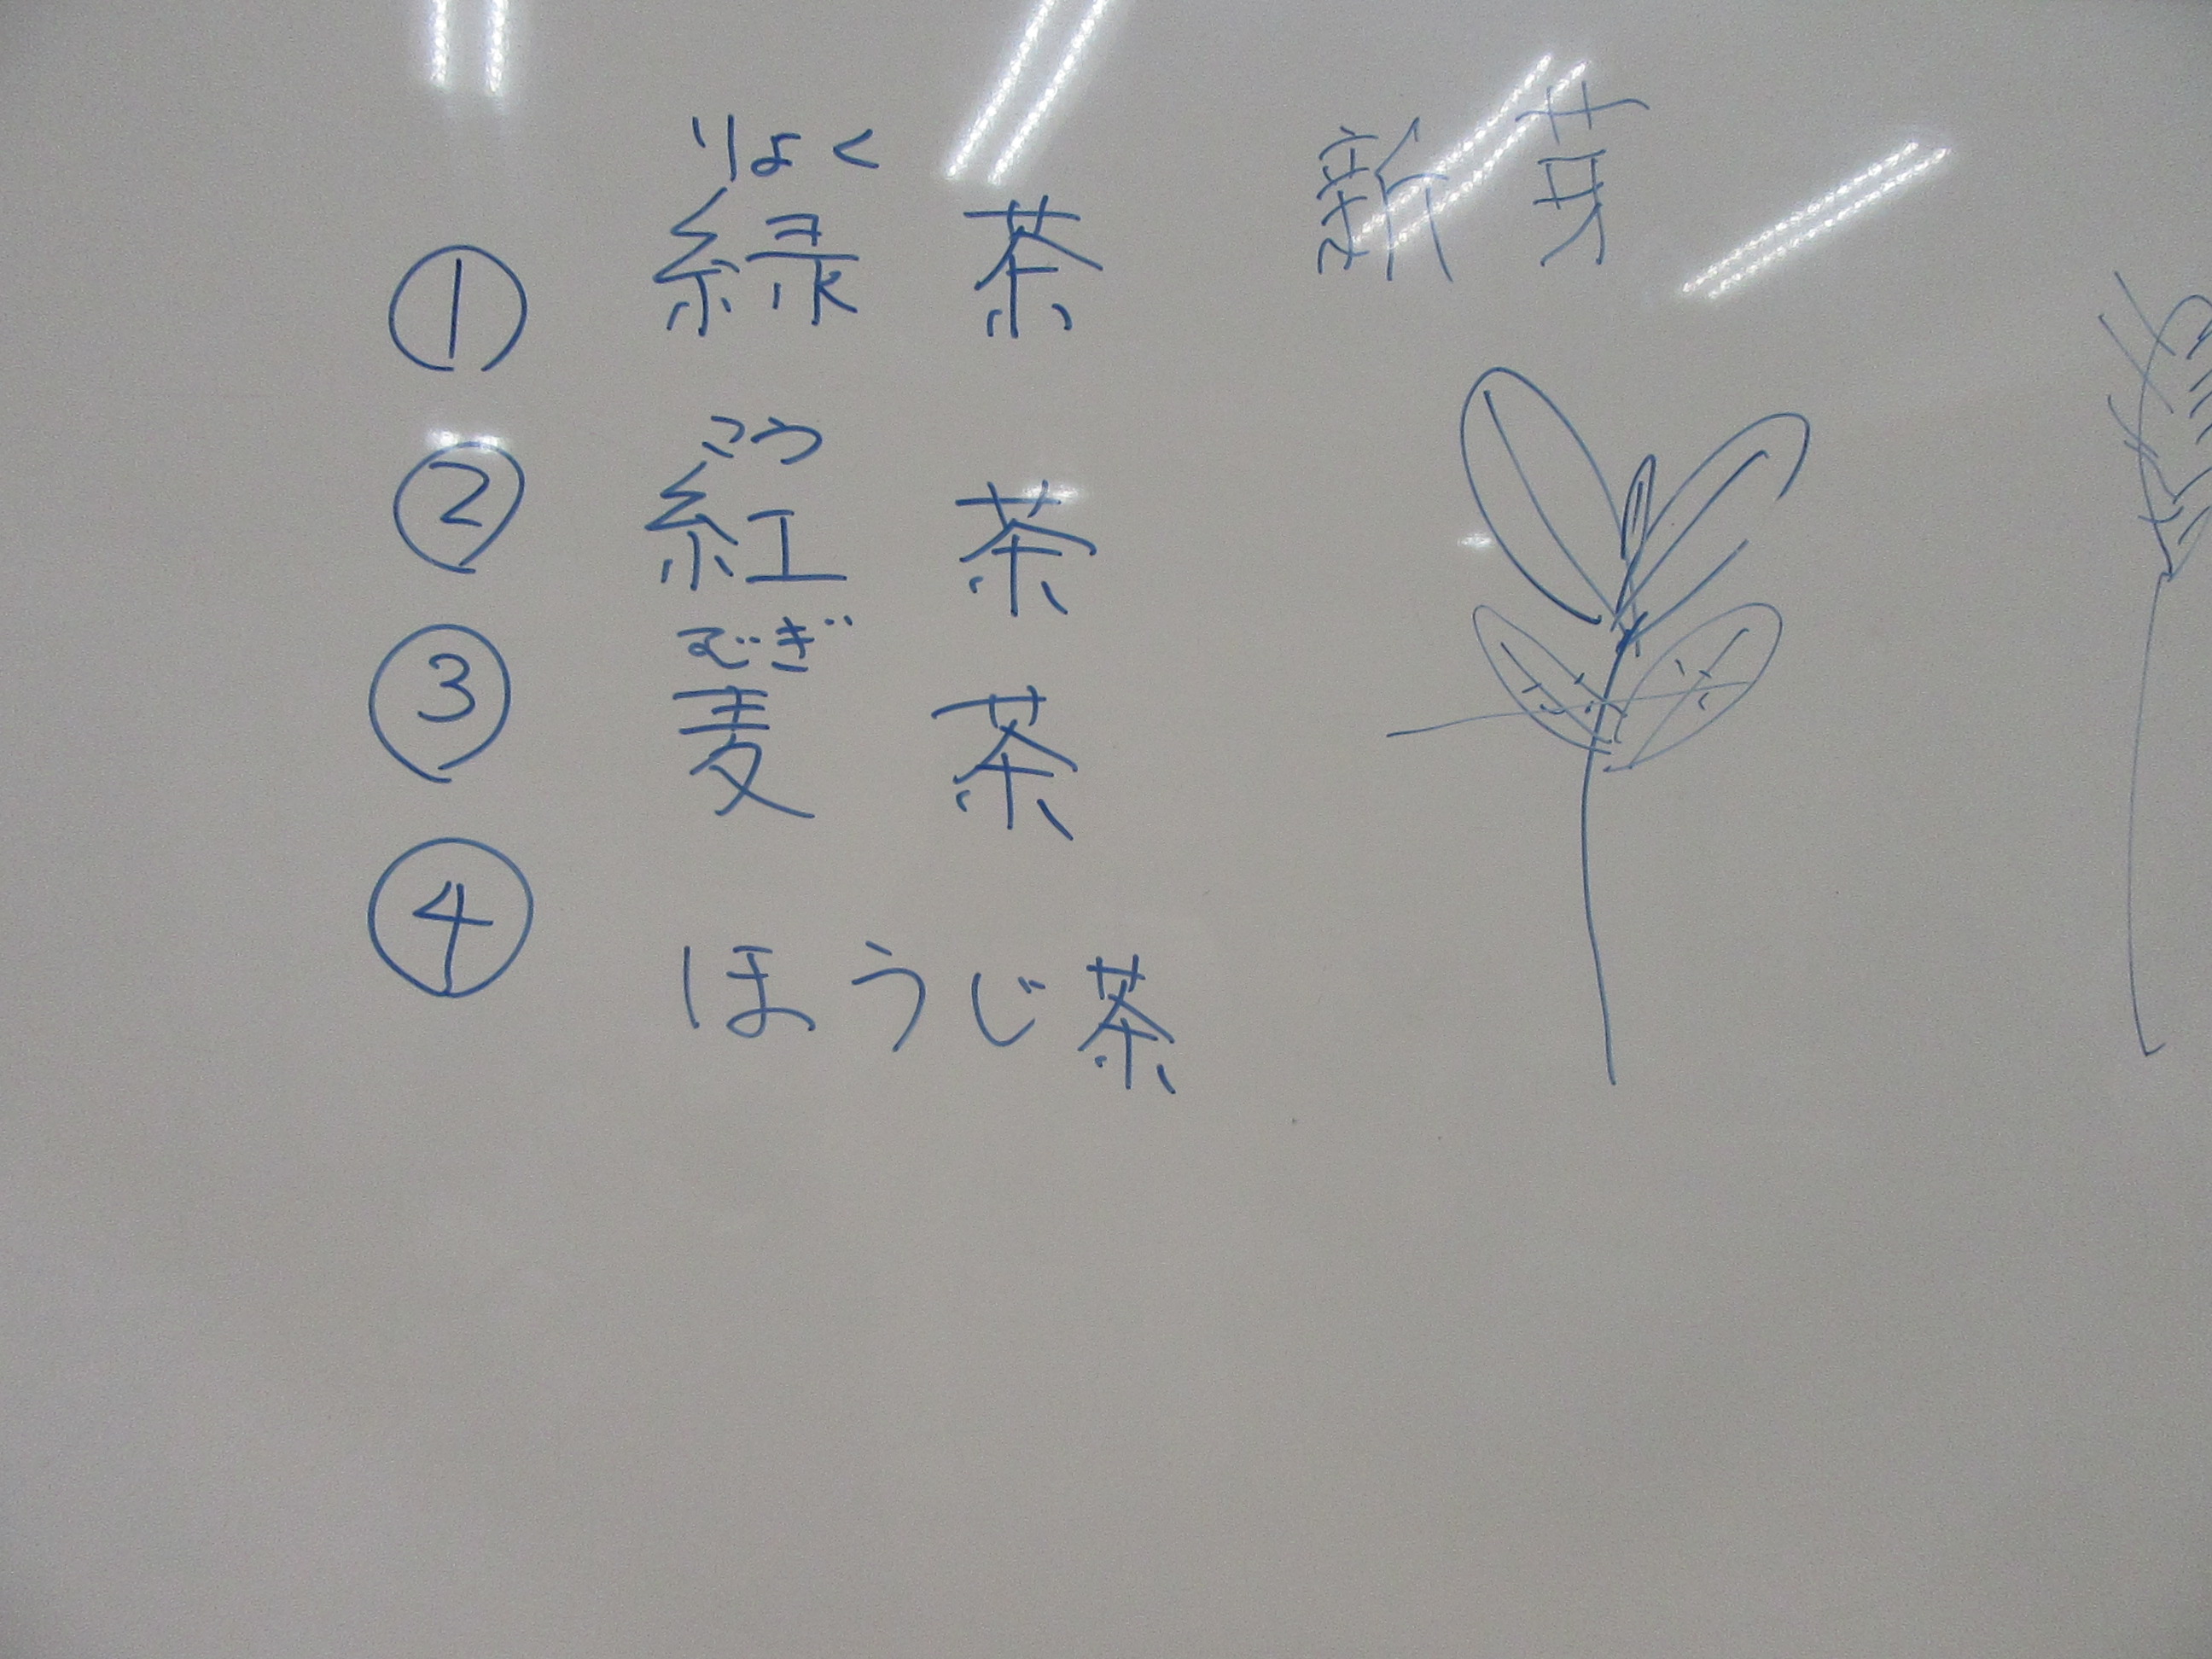 りょく
① 緑茶
こう
② 紅茶
むぎ
③ 麦茶
④ ほうじ茶
新芽